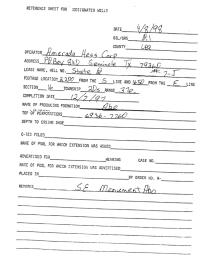 REFERENCE SHEET FOR UNDESIGNATED WELLS
DATE 4/8/98
COUNTY Lea
OPERATOR Amerada Hess Corp
ADDRESS PO Box 840 Seminole Tx 79360
LEASE NAME, WELL NO. State
FOOTAGE LOCATION FROM THE S LINE AND FROM THE E LINE
SECTION TOWNSHIP 20s RANGE 37e
COMPLETION DATE
NAME OF PRODUCING FORMATION Abo
TOP OF PERFORATIONS 6936-7260
DEPTH TO CASING SHOE
C-123 FILED
NAME OF POOL FOR WHICH EXTENSION WAS ASKED
ADVERTISED FOR HEARING CASE NO.
NAME OF POOL FOR WHICH EXTENSION WAS ADVERTISED
PLACED IN BY ORDER NO. R-
REMARKS SE Monument Abo